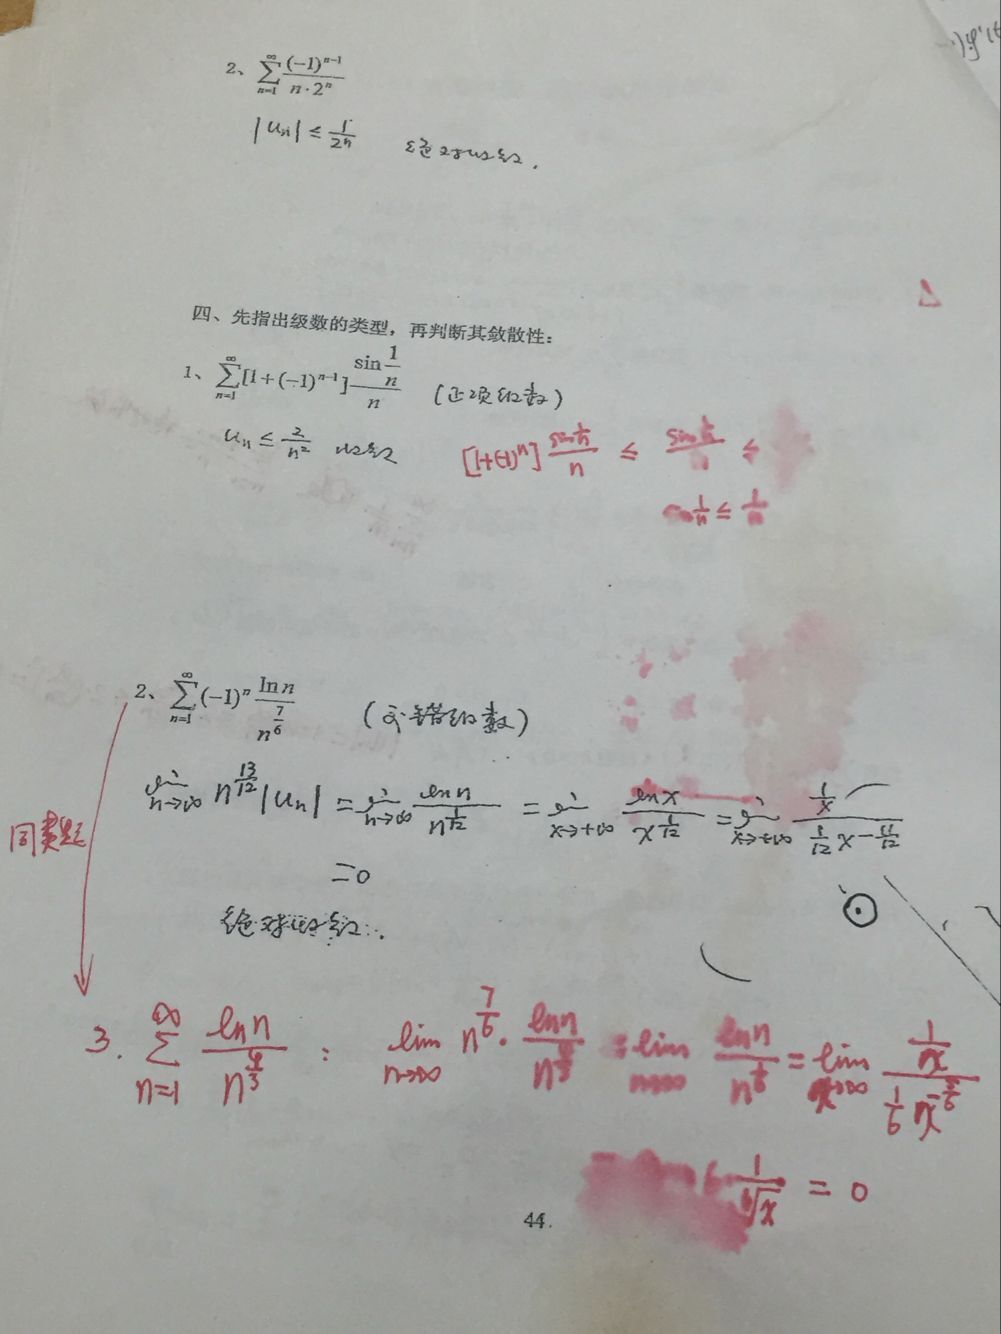 2、$\sum_{n=1}^{\infty}\frac{(-1)^{n-1}}{n\cdot 2^n}$
$|u_n| \leq \frac{1}{2^n}$ 绝对收敛.
四、先指出级数的类型，再判断其敛散性：
1、$\sum_{n=1}^{\infty}[1+(-1)^{n-1}]\frac{\sin\frac{1}{n}}{n}$ (正项级数)
$u_n \leq \frac{2}{n^2}$ 收敛
$[1+(-1)^n]\frac{\sin\frac{1}{n}}{n} \leq \frac{\sin\frac{1}{n}}{n} \leq$
$\sin\frac{1}{n} \leq \frac{1}{n}$
2、$\sum_{n=1}^{\infty}(-1)^n\frac{\ln n}{n^{\frac{7}{6}}}$ (交错级数)
$\lim_{n\to\infty} n^{\frac{13}{12}}|u_n| = \lim_{n\to\infty}\frac{\ln n}{n^{\frac{1}{12}}} = \lim_{x\to+\infty}\frac{\ln x}{x^{\frac{1}{12}}} = \lim_{x\to+\infty}\frac{\frac{1}{x}}{\frac{1}{12}x^{-\frac{11}{12}}}$
同类题
$=0$
绝对收敛.
3. $\sum_{n=1}^{\infty}\frac{\ln n}{n^{\frac{4}{3}}}$ : $\lim_{n\to\infty} n^{\frac{7}{6}}\cdot\frac{\ln n}{n^{\frac{4}{3}}} = \lim_{n\to\infty}\frac{\ln n}{n^{\frac{1}{6}}} = \lim_{x\to\infty}\frac{\frac{1}{x}}{\frac{1}{6}x^{-\frac{5}{6}}}$
$6\frac{1}{\sqrt[6]{x}} = 0$
44.